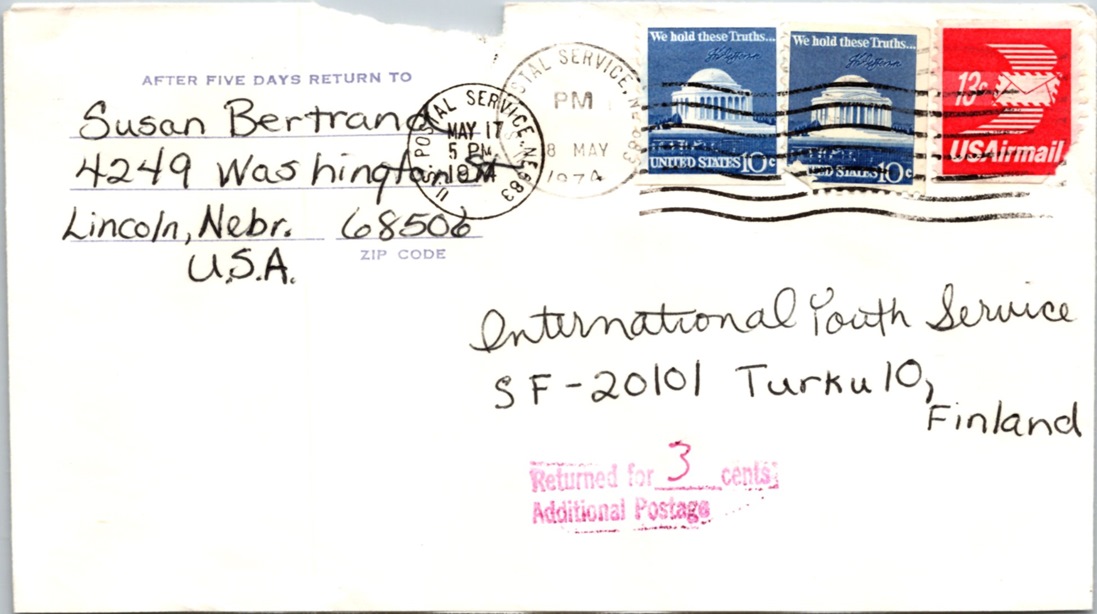 AFTER FIVE DAYS RETURN TO
Susan Bertrand
4249 Washington St
Lincoln, Nebr. 68506
ZIP CODE
U.S.A.
POSTAL SERVICE, NE 683
MAY 17
5 PM
1974
POSTAL SERVICE, NE 683
PM
8 MAY
1974
We hold these Truths...
UNITED STATES 10c
We hold these Truths...
UNITED STATES 10c
13c
USAirmail
International Youth Service
SF-20101 Turku 10,
Finland
Returned for 3 cents
Additional Postage